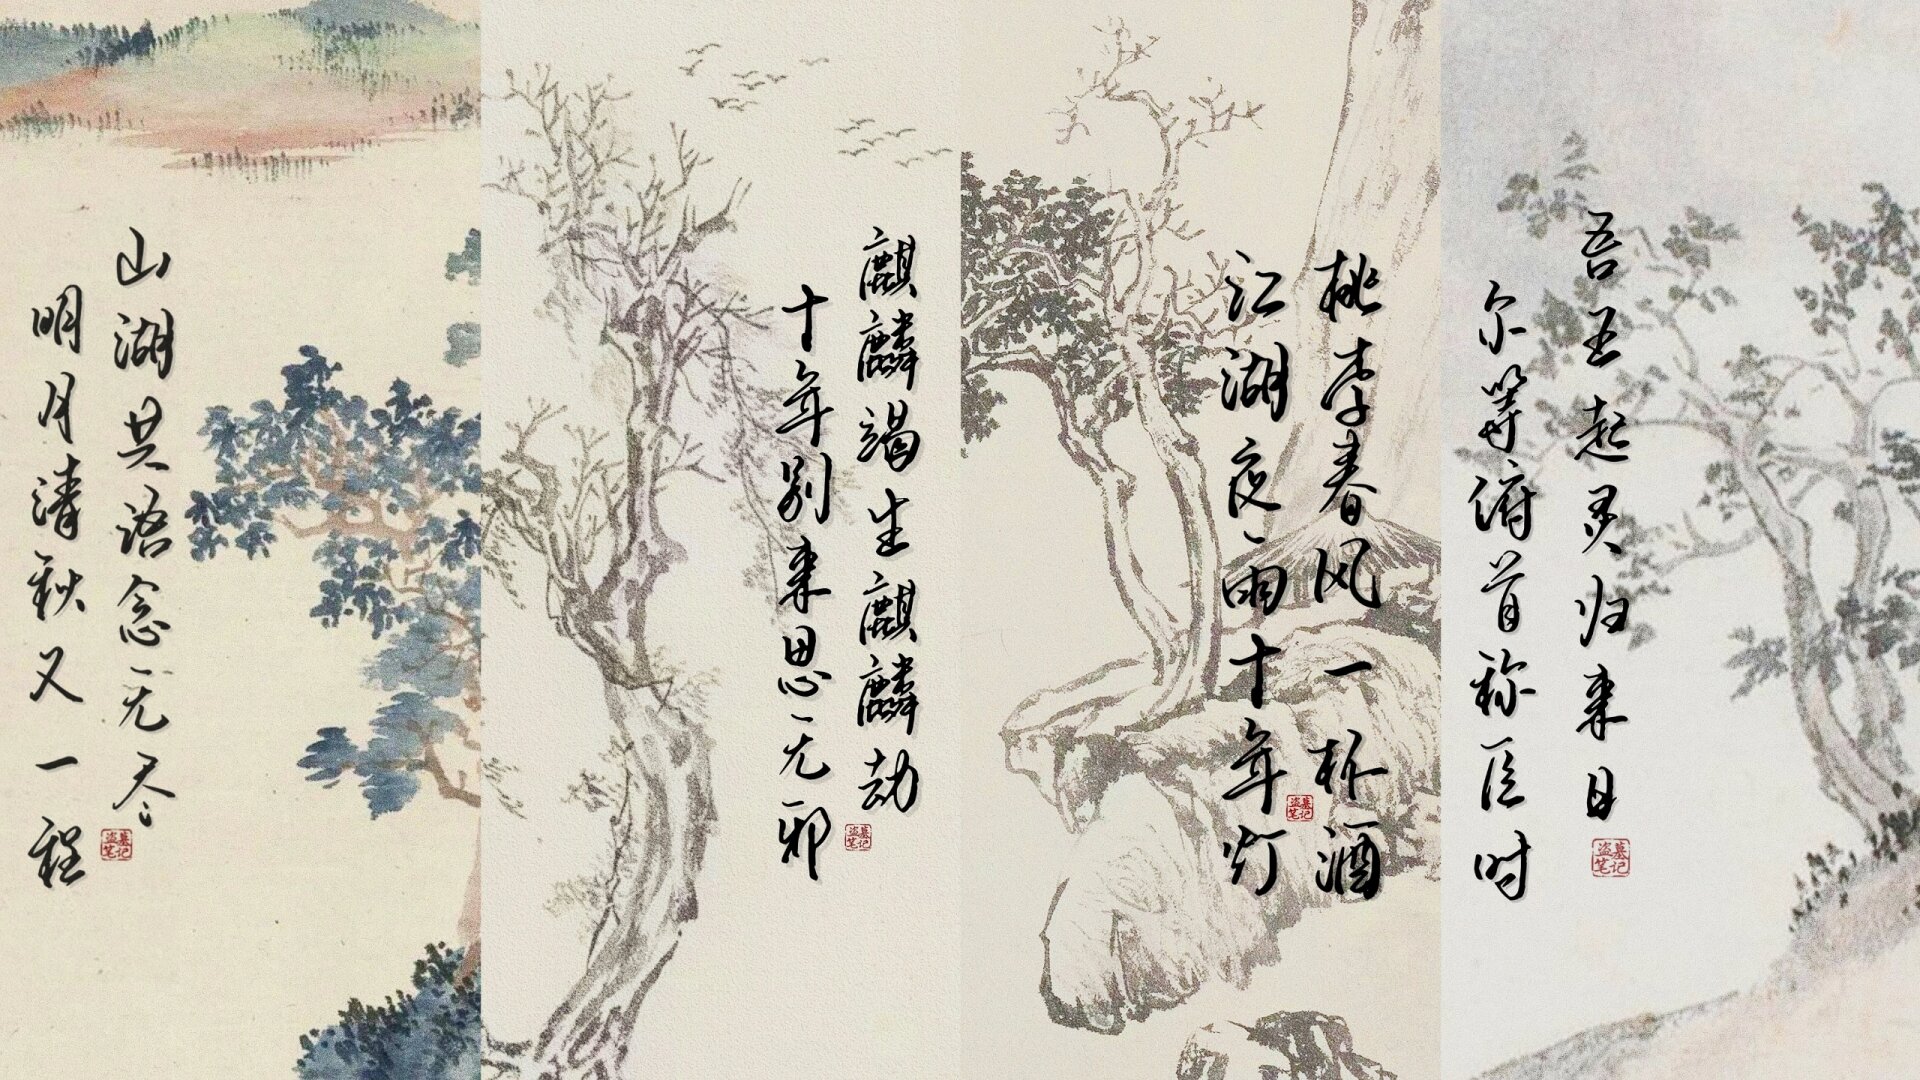 山湖共语念无尽
明月清秋又一程
盗墓笔记
麒麟竭生麒麟劫
十年别来思无邪
盗墓笔记
桃李春风一杯酒
江湖夜雨十年灯
盗墓笔记
吾王起灵归来日
尔等俯首称臣时
盗墓笔记